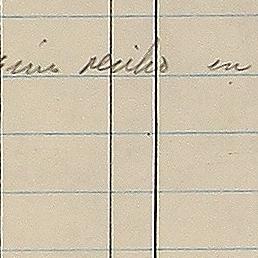 recibo en